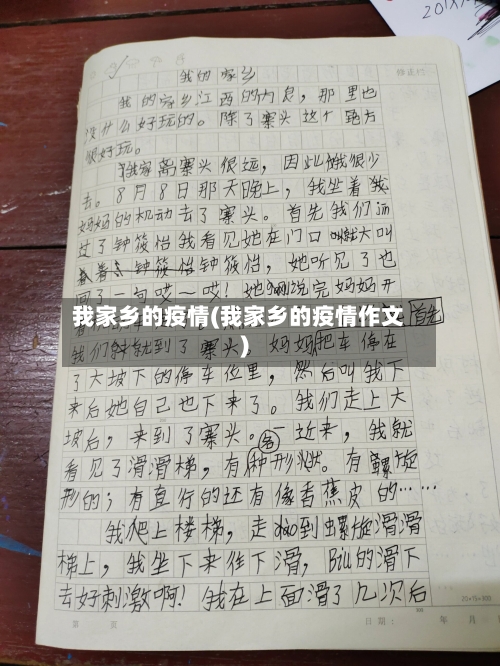 201
我的家乡
修正栏
我的家乡江西的内息，那里也
没什么好玩的。除了寨头这个地方
很好玩。
我家离寨头很远，因此我很少
去。8月8日那天晚上，我坐着我
妈妈的机动去了寨头。首先我们
过了钟筱怡我看见她在门口就大叫
钟筱怡钟筱怡，她听见了也
回了一句哎～哎！她说完妈妈开
我家乡的疫情(我家乡的疫情作文
)
首先
我们就到了寨头，妈妈把车停在
了大坡下的停车位里，然后叫我下
来后她自己也下来了。我们走上大
坡后，来到了寨头。一近来，我就
看见了滑滑梯，有各种形状。有螺旋
形的；有直行的还有像香蕉皮的……
我爬上楼梯，走到螺旋滑滑
梯上，我坐下来往下滑，Biu的滑下
去好刺激啊！我在上面滑了几次后
第 页
日期： 年 月
20×15=300